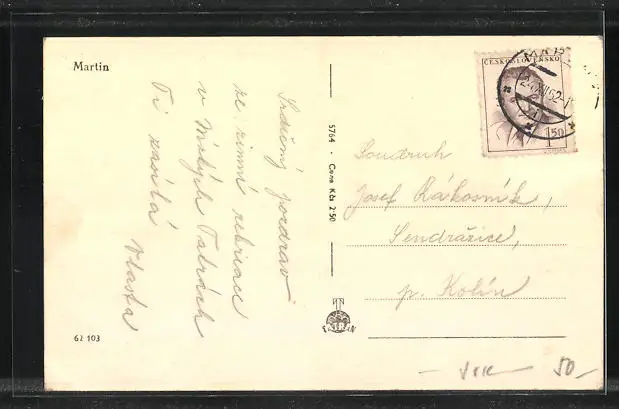 Martin
Srdečný pozdrav
ze zimní rekreace
v Nízkých Tatrách
Ti zasílá Vlasta
62 103
5764 · Cena Kčs 2·50
ČESKOSLOVENSKO
1.50
Soudruh
Josef Rákosník,
Sendražice,
p. Kolín
50,-